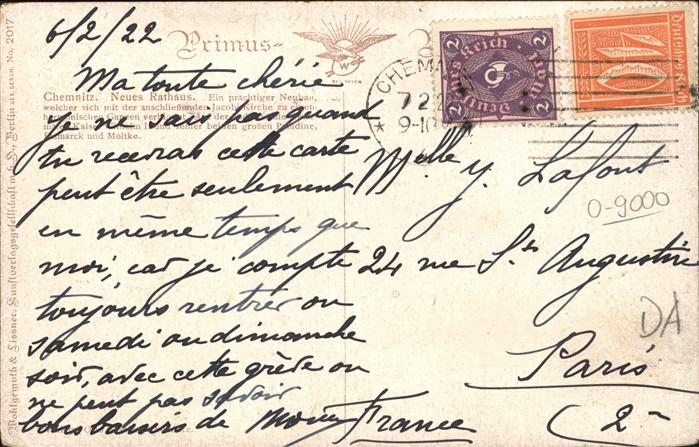 6/2/22
Primus-
Ma toute chérie
Chemnitz. Neues Rathaus. Ein prächtiger Neubau,
welcher sich mit der anschließenden Jacobi-Kirche zu einem
Bismarck und Moltke.
je ne sais pas quand
tu recevras cette carte
peut être seulement
en même temps que
moi, car je compte
toujours rentrer ou
samedi ou dimanche
soir, avec cette grève on
ne peut pas savoir
bons baisers de
Melle Y. Lafont
0-9000
24 rue St Augustin
DA
Paris
France
(2-
CHEMNITZ
7 2 22
9-10
2 Deutsches Reich 2
Deutsches Reich
Wohlgemuth & Lissner, Kunstverlagsgesellschaft m. b. H., Berlin
No. 2017